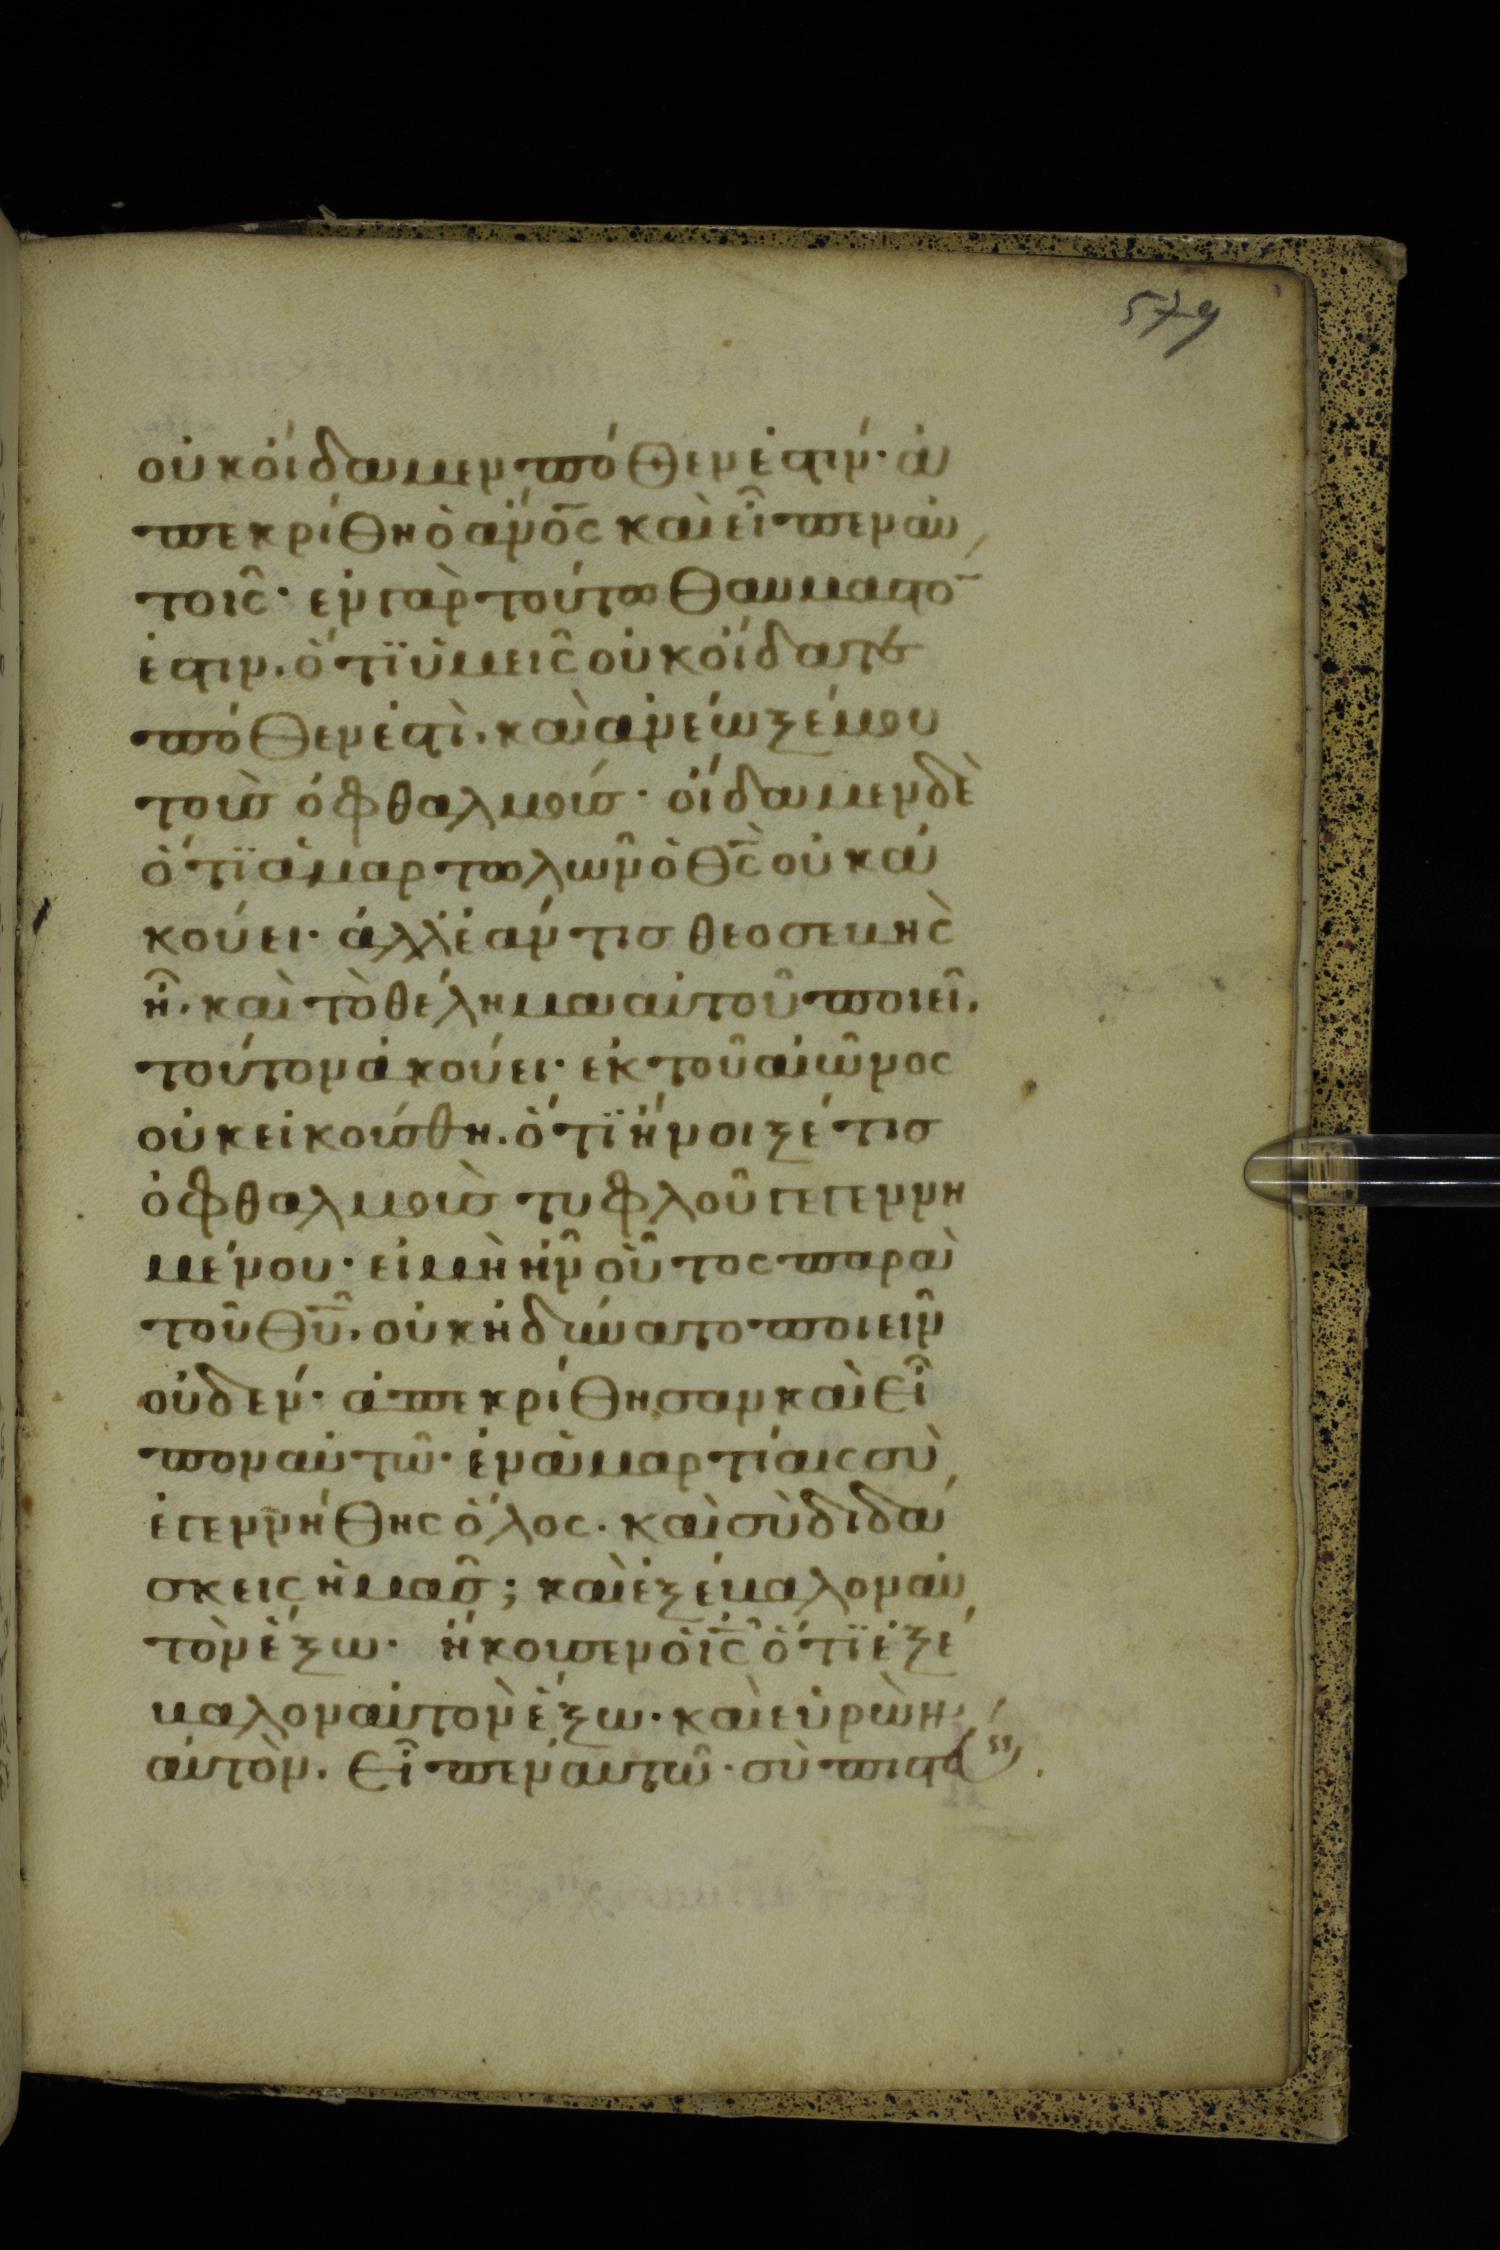 579
οὐκ οἴδαμεν πόθεν ἐστίν· ἀ
πεκρίθη ὁ ἀν̅ο̅ς καὶ εἶπεν αὐ
τοῖς· ἐν γὰρ τούτω θαυμαστο̅
ἐστιν. ὅτϊ ὑμεῖς οὐκ οἴδατε
πόθεν ἐστὶ. καὶ ἀνέωξέ μου
τοὺς ὀφθαλμούς· οἴδαμεν δὲ
ὅτϊ ἁμαρτωλῶν ὁ θ̅ς̅ οὐκ ἀ
κούει· ἀλλ' ἐάν τις θεοσεβὴς
ἦ. καὶ τὸ θέλημα αὐτοῦ ποιεῖ.
τούτον ἀκούει· ἐκ τοῦ αἰῶνος
οὐκ εἰκούσθη. ὅτϊ ἤνοιξέ τις
ὀφθαλμοὺς τυφλοῦ γεγεννη
μένου· εἰ μὴ ἦν οὗτος παρὰ
τοῦ θ̅υ̅. οὐκ ἠδύνατο ποιεῖν
οὐδέν· ἀπεκρίθησαν καὶ εἶ
πον αὐτῶ· ἐν ἁμαρτίαις σὺ
ἐγεννήθης ὅλος. καὶ σὺ διδά
σκεις ἡμᾶς; καὶ ἐξέβαλον αὐ
τὸν ἔξω· ἤκουσεν ὁ ι̅ς̅ ὅτϊ ἐξέ
βαλον αὐτὸν ἔξω. καὶ εὑρὼν
αὐτὸν. εἶπεν αὐτῶ· σὺ πιστεύ